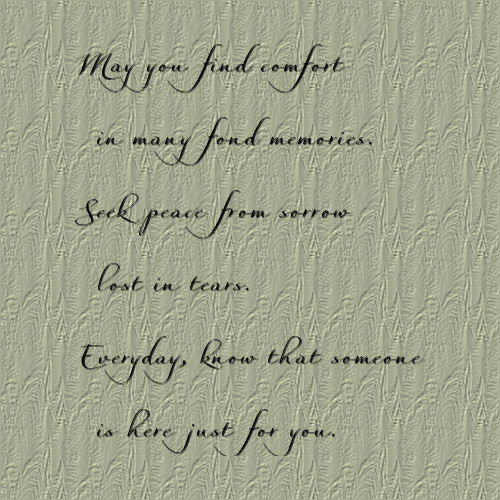 May you find comfort
in many fond memories.
Seek peace from sorrow
lost in tears.
Everyday, know that someone
is here just for you.